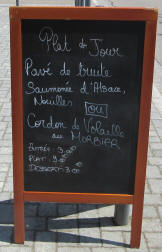 Plat du Jour
Pavé de truite
Saumonée d'Alsace,
Nouilles
ou
Cordon de Volaille
au MORBIER
Entrée: 3.00
PLAT: 9.00
DESSERT: 3.00